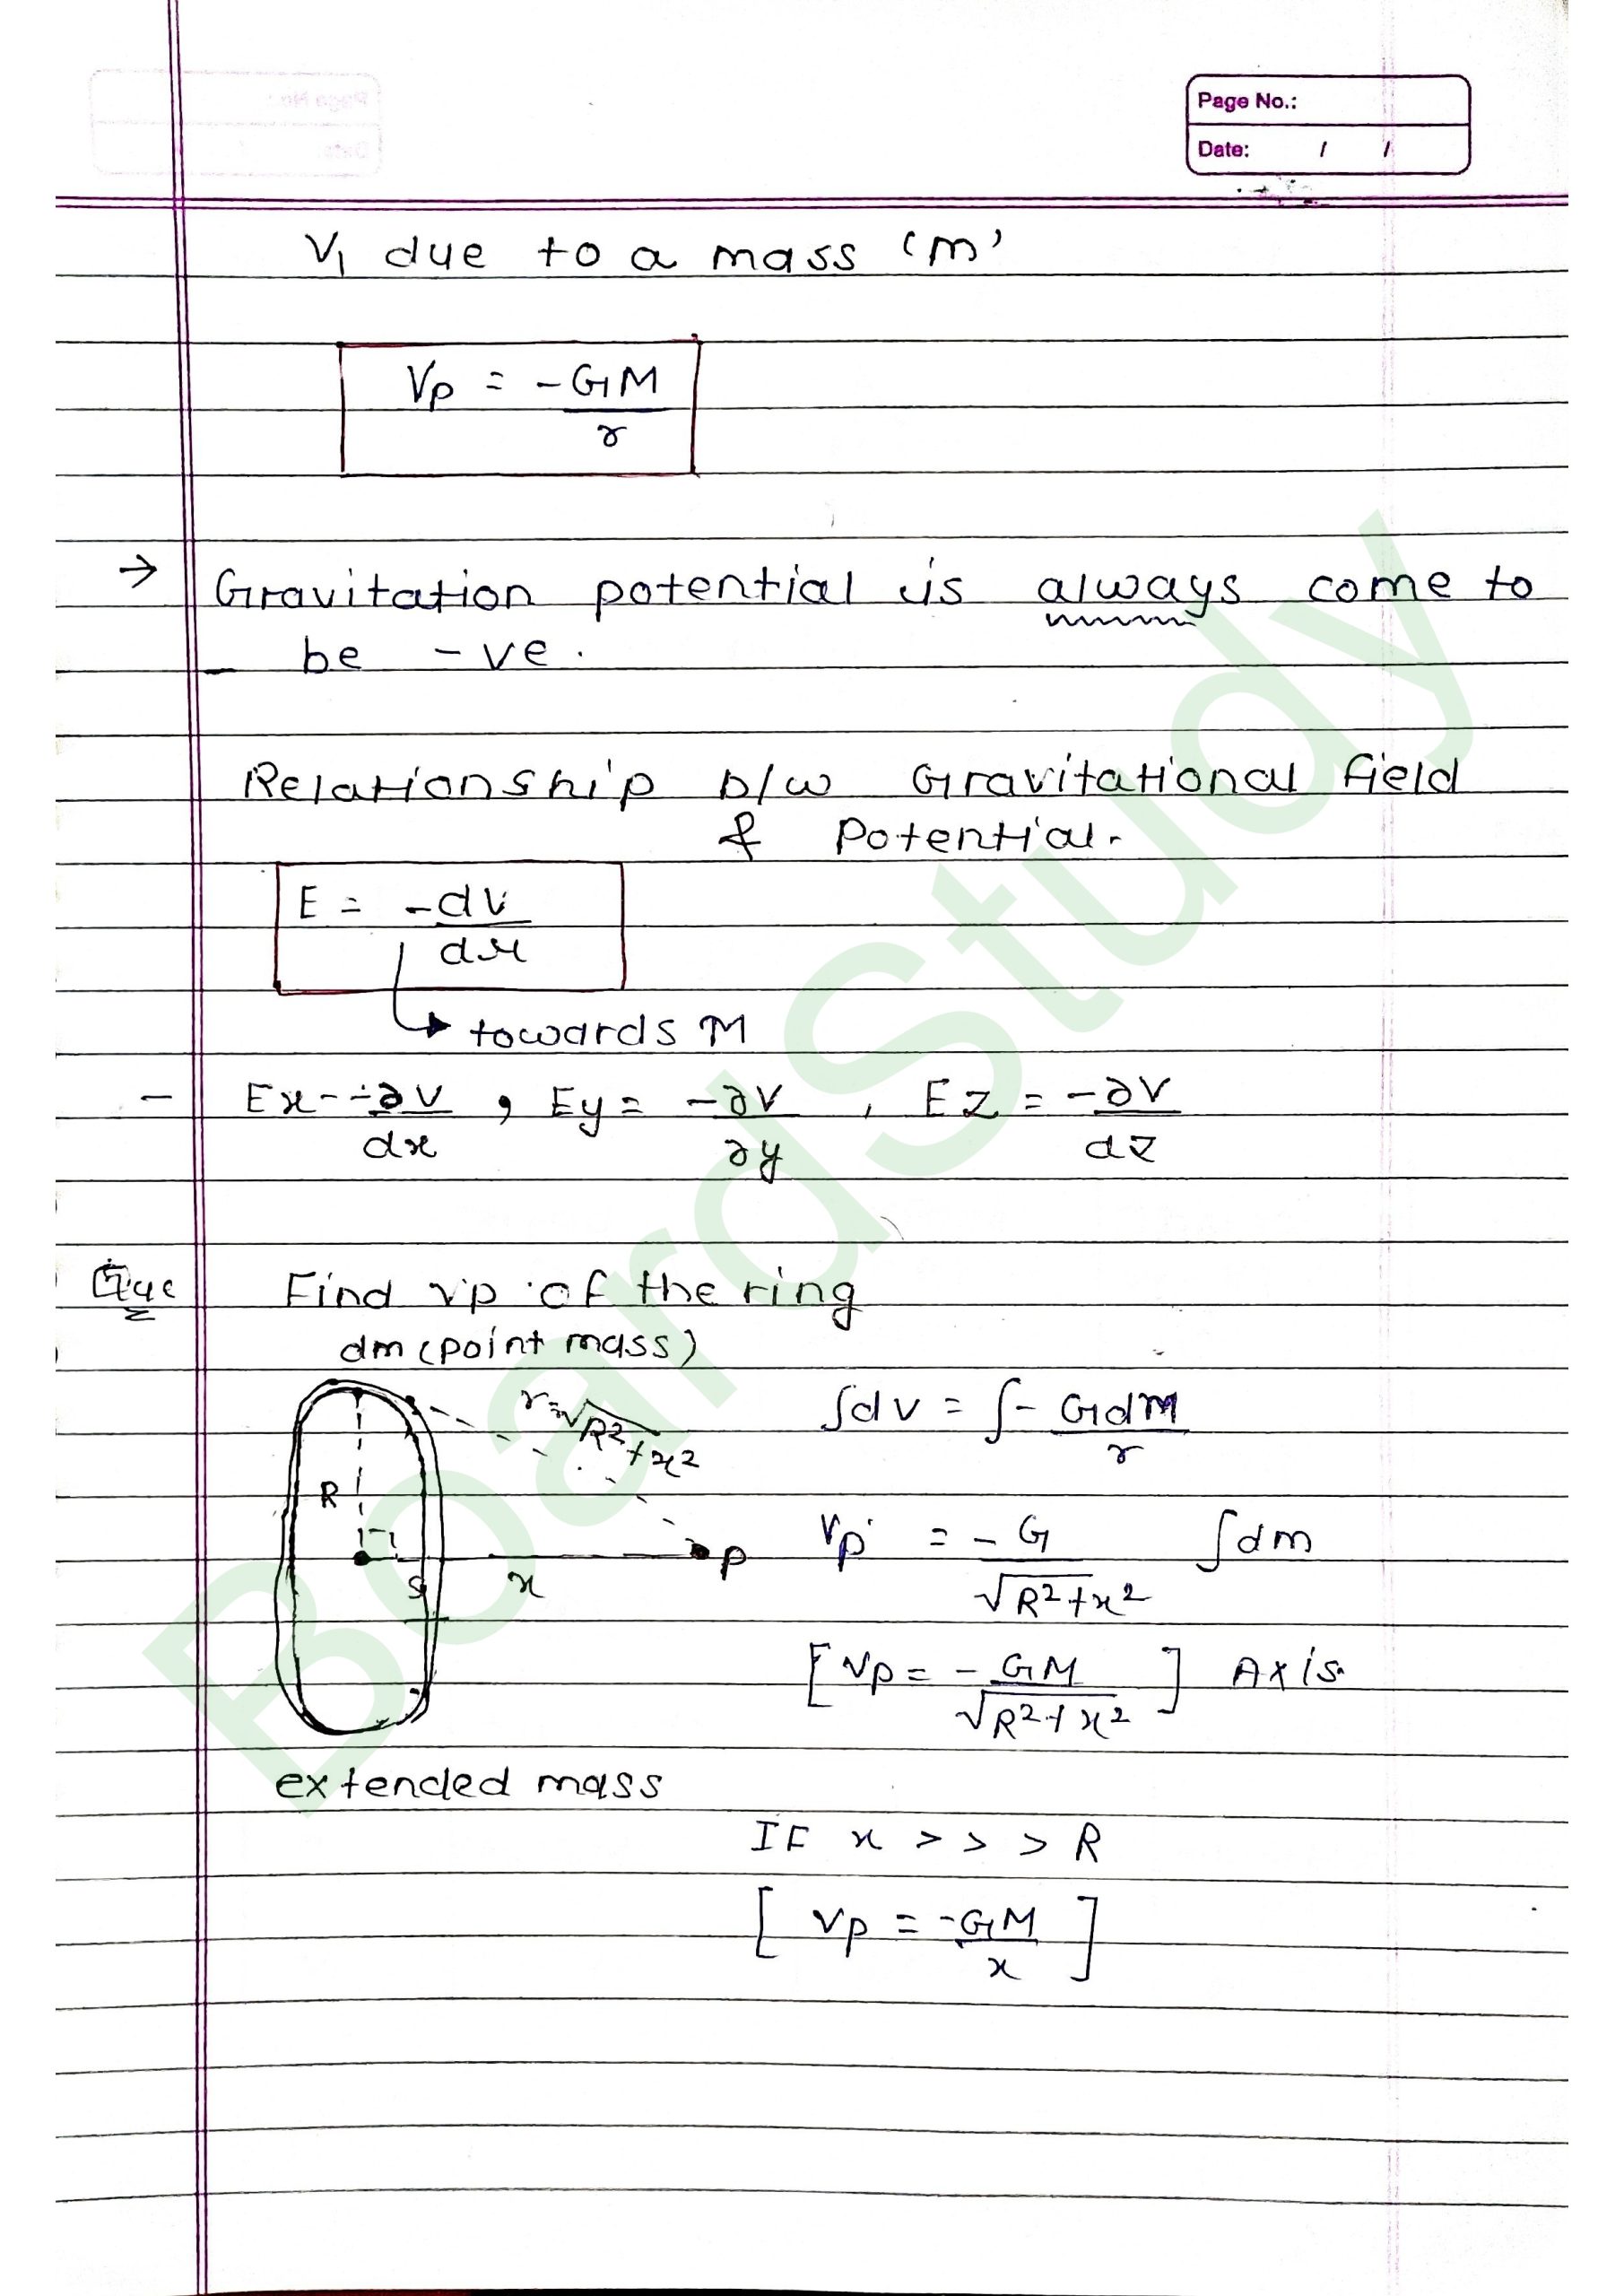 Page No.:
Date: / /
V, due to a mass 'm'
Vp = -GM/r
→ Gravitation potential is always come to
be -ve.
Relationship b/w Gravitational field
& Potential.
E = -dv/dr
↳ towards M
- Ex - -∂V/dx , Ey = -∂V/∂y , Ez = -∂V/dz
Que Find vp of the ring
dm (point mass)
r=√R²+x²
∫dv = ∫- Gdm/r
R
x
P
Vp = -G/√R²+x² ∫dm
[Vp = - GM/√R²+x²] Axis
extended mass
IF x >>> R
[Vp = -GM/x]
BoardStudy